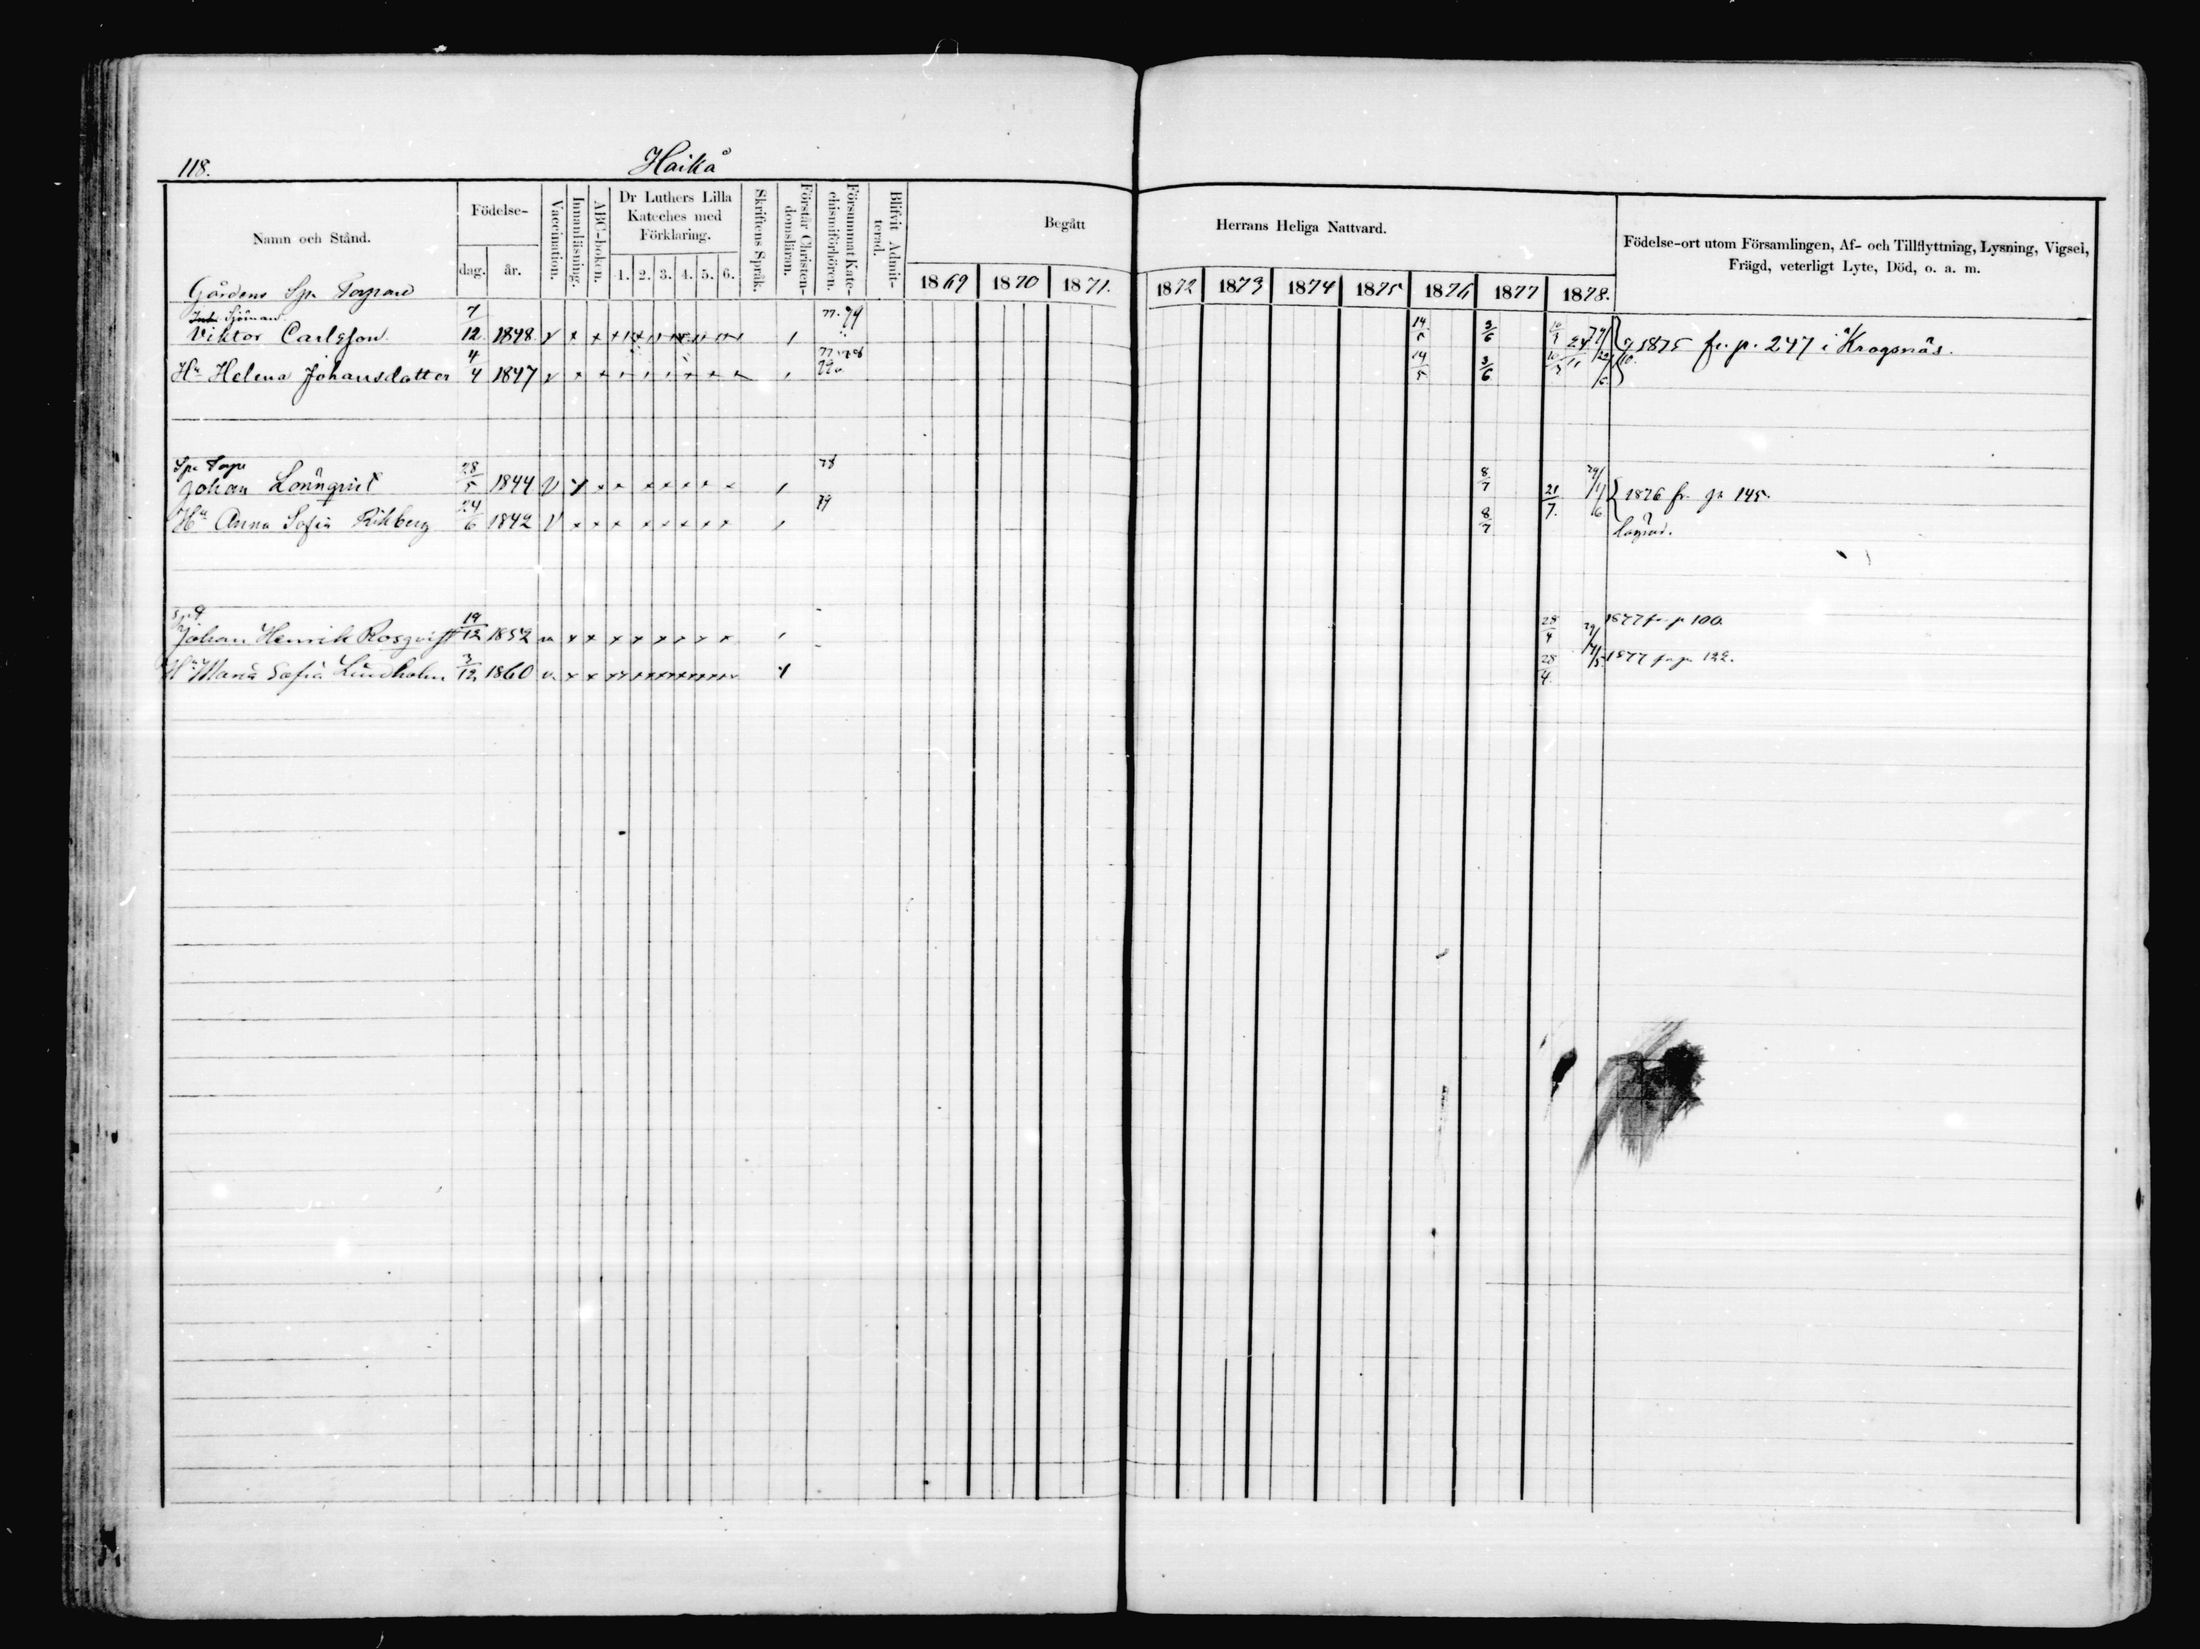 118. Haikå
Namn och Stånd. Födelse- dag. år. Vaccination. Innanläsning. ABC-boken. Dr Luthers Lilla Kateches med Förklaring. 1. 2. 3. 4. 5. 6. Skriftens Språk. Förstår Christendomsläran. Försummat Katechismiförhören. Blifvit Admitterad. Begått Herrans Heliga Nattvard. Födelse-ort utom Församlingen, Af- och Tillflyttning, Lysning, Vigsel, Frägd, veterligt Lyte, Död, o. a. m.
1869 1870 1871. 1872 1873 1874 1875 1876 1877 1878.
Gårdens Sp.
Sjöman
Viktor Carlsson 7/12 1848 v 77. 79 14/5 3/6 1875 fr. p. 247 i Krogsnäs.
Hu Helena Johansdotter 4/4 1847 v 14/5 3/6
Sp. Torp.
Johan Lönnqvist 28/5 1844 V 78 8/7 21/7. 1876 fr. p. 145.
Hu Anna Sofia Rihberg 24/6 1842 V 79 8/7
Johan Henrik Rosqvist 19/12 1852 28/4 1877 fr. p 100.
Hu Maria Sofia Lindholm 3/12 1860 v. 28/4. 1877 fr. p. 122.